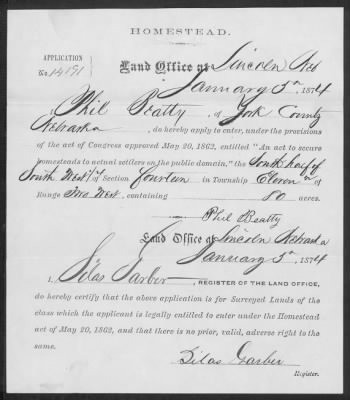 HOMESTEAD.
APPLICATION
No. 14191
Land Office at Lincoln Neb
January 5th, 1874
I, Phil Beatty, of York County
Nebraska, do hereby apply to enter, under the provisions
of the act of Congress approved May 20, 1862, entitled "An act to secure
homesteads to actual settlers on the public domain," the South half of
South West 1/4 of Section fourteen in Township Eleven N of
Range Two West, containing 80 acres.
Phil Beatty
Land Office at Lincoln Nebraska
January 5th, 1874
I, Silas Garber, REGISTER OF THE LAND OFFICE,
do hereby certify that the above application is for Surveyed Lands of the
class which the applicant is legally entitled to enter under the Homestead
act of May 20, 1862, and that there is no prior, valid, adverse right to the
same.
Silas Garber
Register.